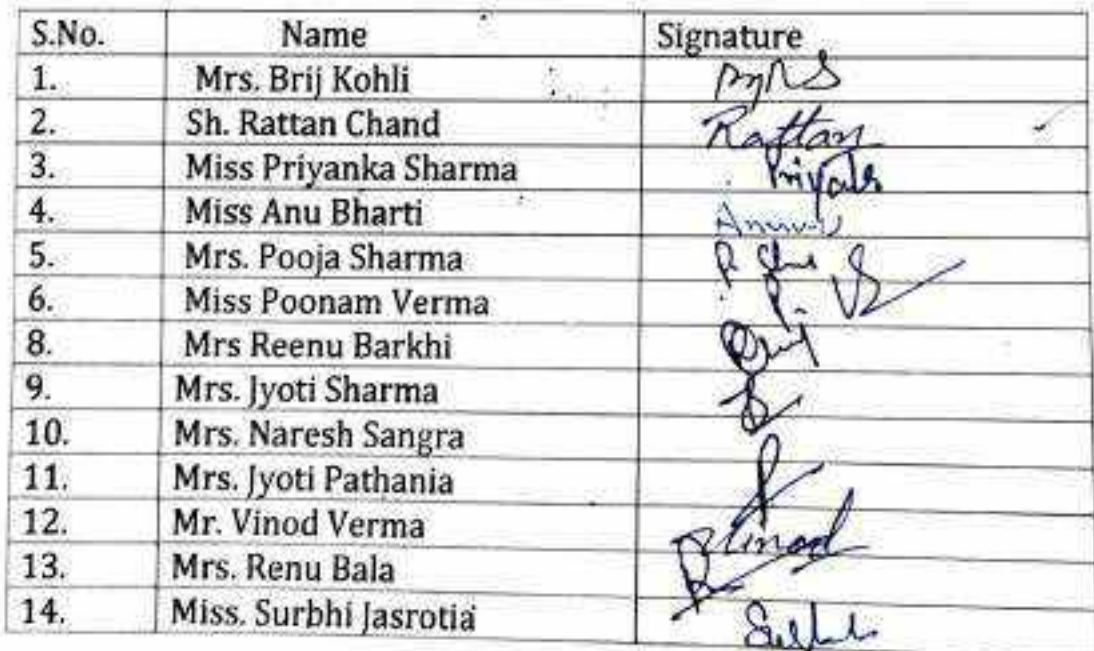 S.No. Name Signature
1. Mrs. Brij Kohli
2. Sh. Rattan Chand Rattan
3. Miss Priyanka Sharma
4. Miss Anu Bharti
5. Mrs. Pooja Sharma
6. Miss Poonam Verma
8. Mrs Reenu Barkhi
9. Mrs. Jyoti Sharma
10. Mrs. Naresh Sangra
11. Mrs. Jyoti Pathania
12. Mr. Vinod Verma Vinod
13. Mrs. Renu Bala
14. Miss. Surbhi Jasrotia